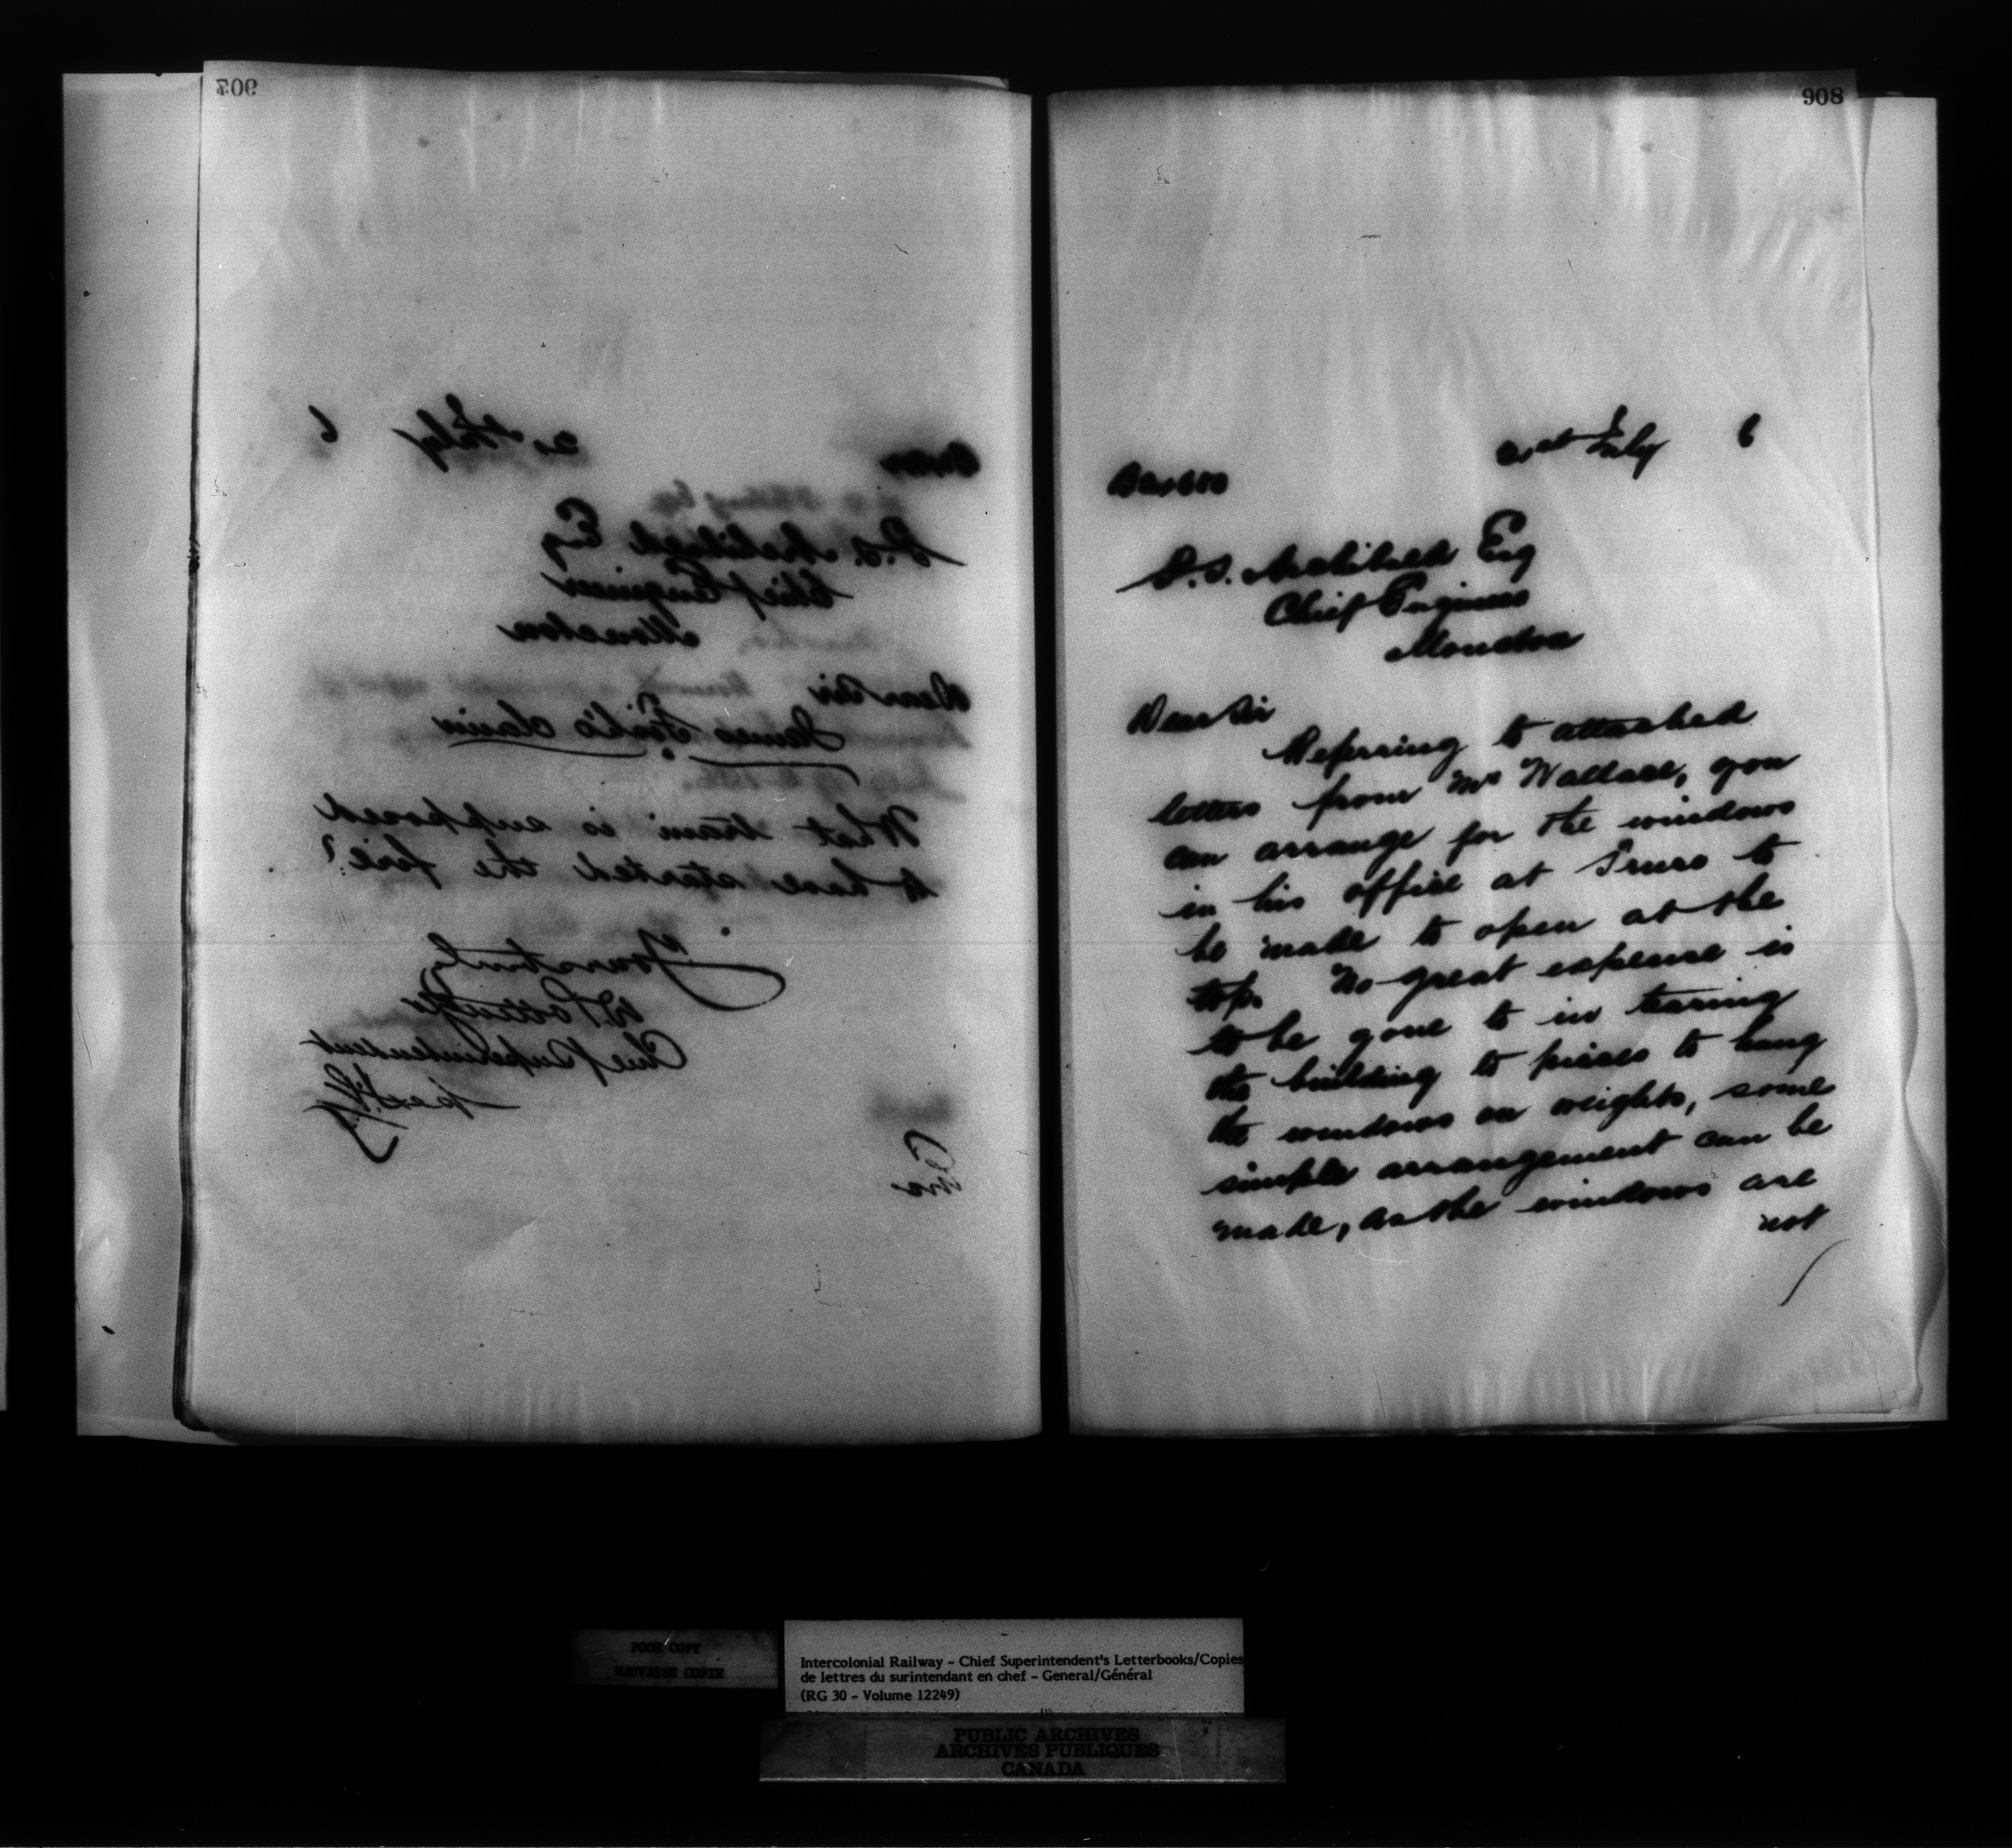 907
21st July 6
P.S. Archibald Esq
Chief Engineer
Moncton
Dear Sir
James Foil's claim
What train is supposed
to have started the fire?
Yours truly
D Pottinger
Chief Superintendent
908
21st July 6
P.S. Archibald Esq
Chief Engineer
Moncton
Dear Sir
Referring to attached
letters from Mr Wallace, you
can arrange for the windows
in his office at Truro to
be made to open at the
top. No great expense is
to be gone to in tearing
the building to pieces to hang
the windows on weights, some
simple arrangement can be
made, as the windows are
not
POOR COPY
MAUVAISE COPIE
Intercolonial Railway - Chief Superintendent's Letterbooks/Copies
de lettres du surintendant en chef - General/Général
(RG 30 - Volume 12249)
PUBLIC ARCHIVES
ARCHIVES PUBLIQUES
CANADA